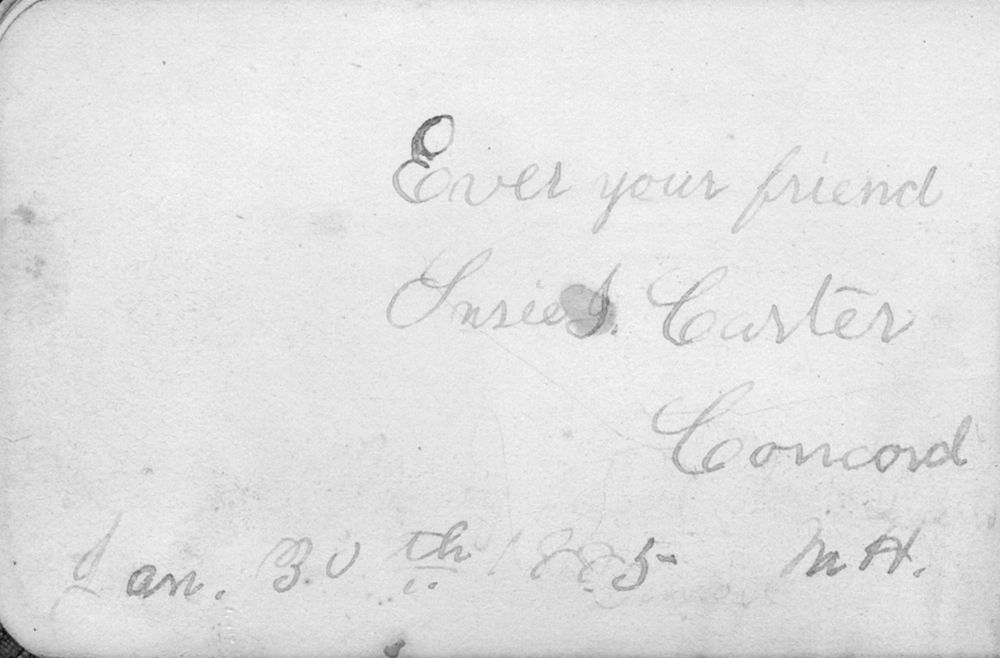 Ever your friend
Susie J. Carter
Concord
Jan. 30th 1885 N.H.